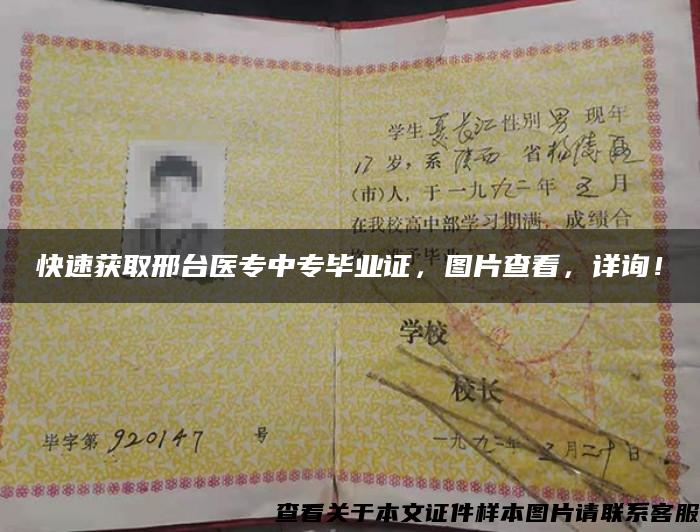 学生夏长江性别男 现年
17岁，系陕西 省杨陵
(市)人，于一九九二年 五月
在我校高中部学习期满，成绩合
快速获取邢台医专中专毕业证，图片查看，详询！
学校
校长
毕字第 920147 号
一九九二年 五月二十日
查看关于本文证件样本图片请联系客服